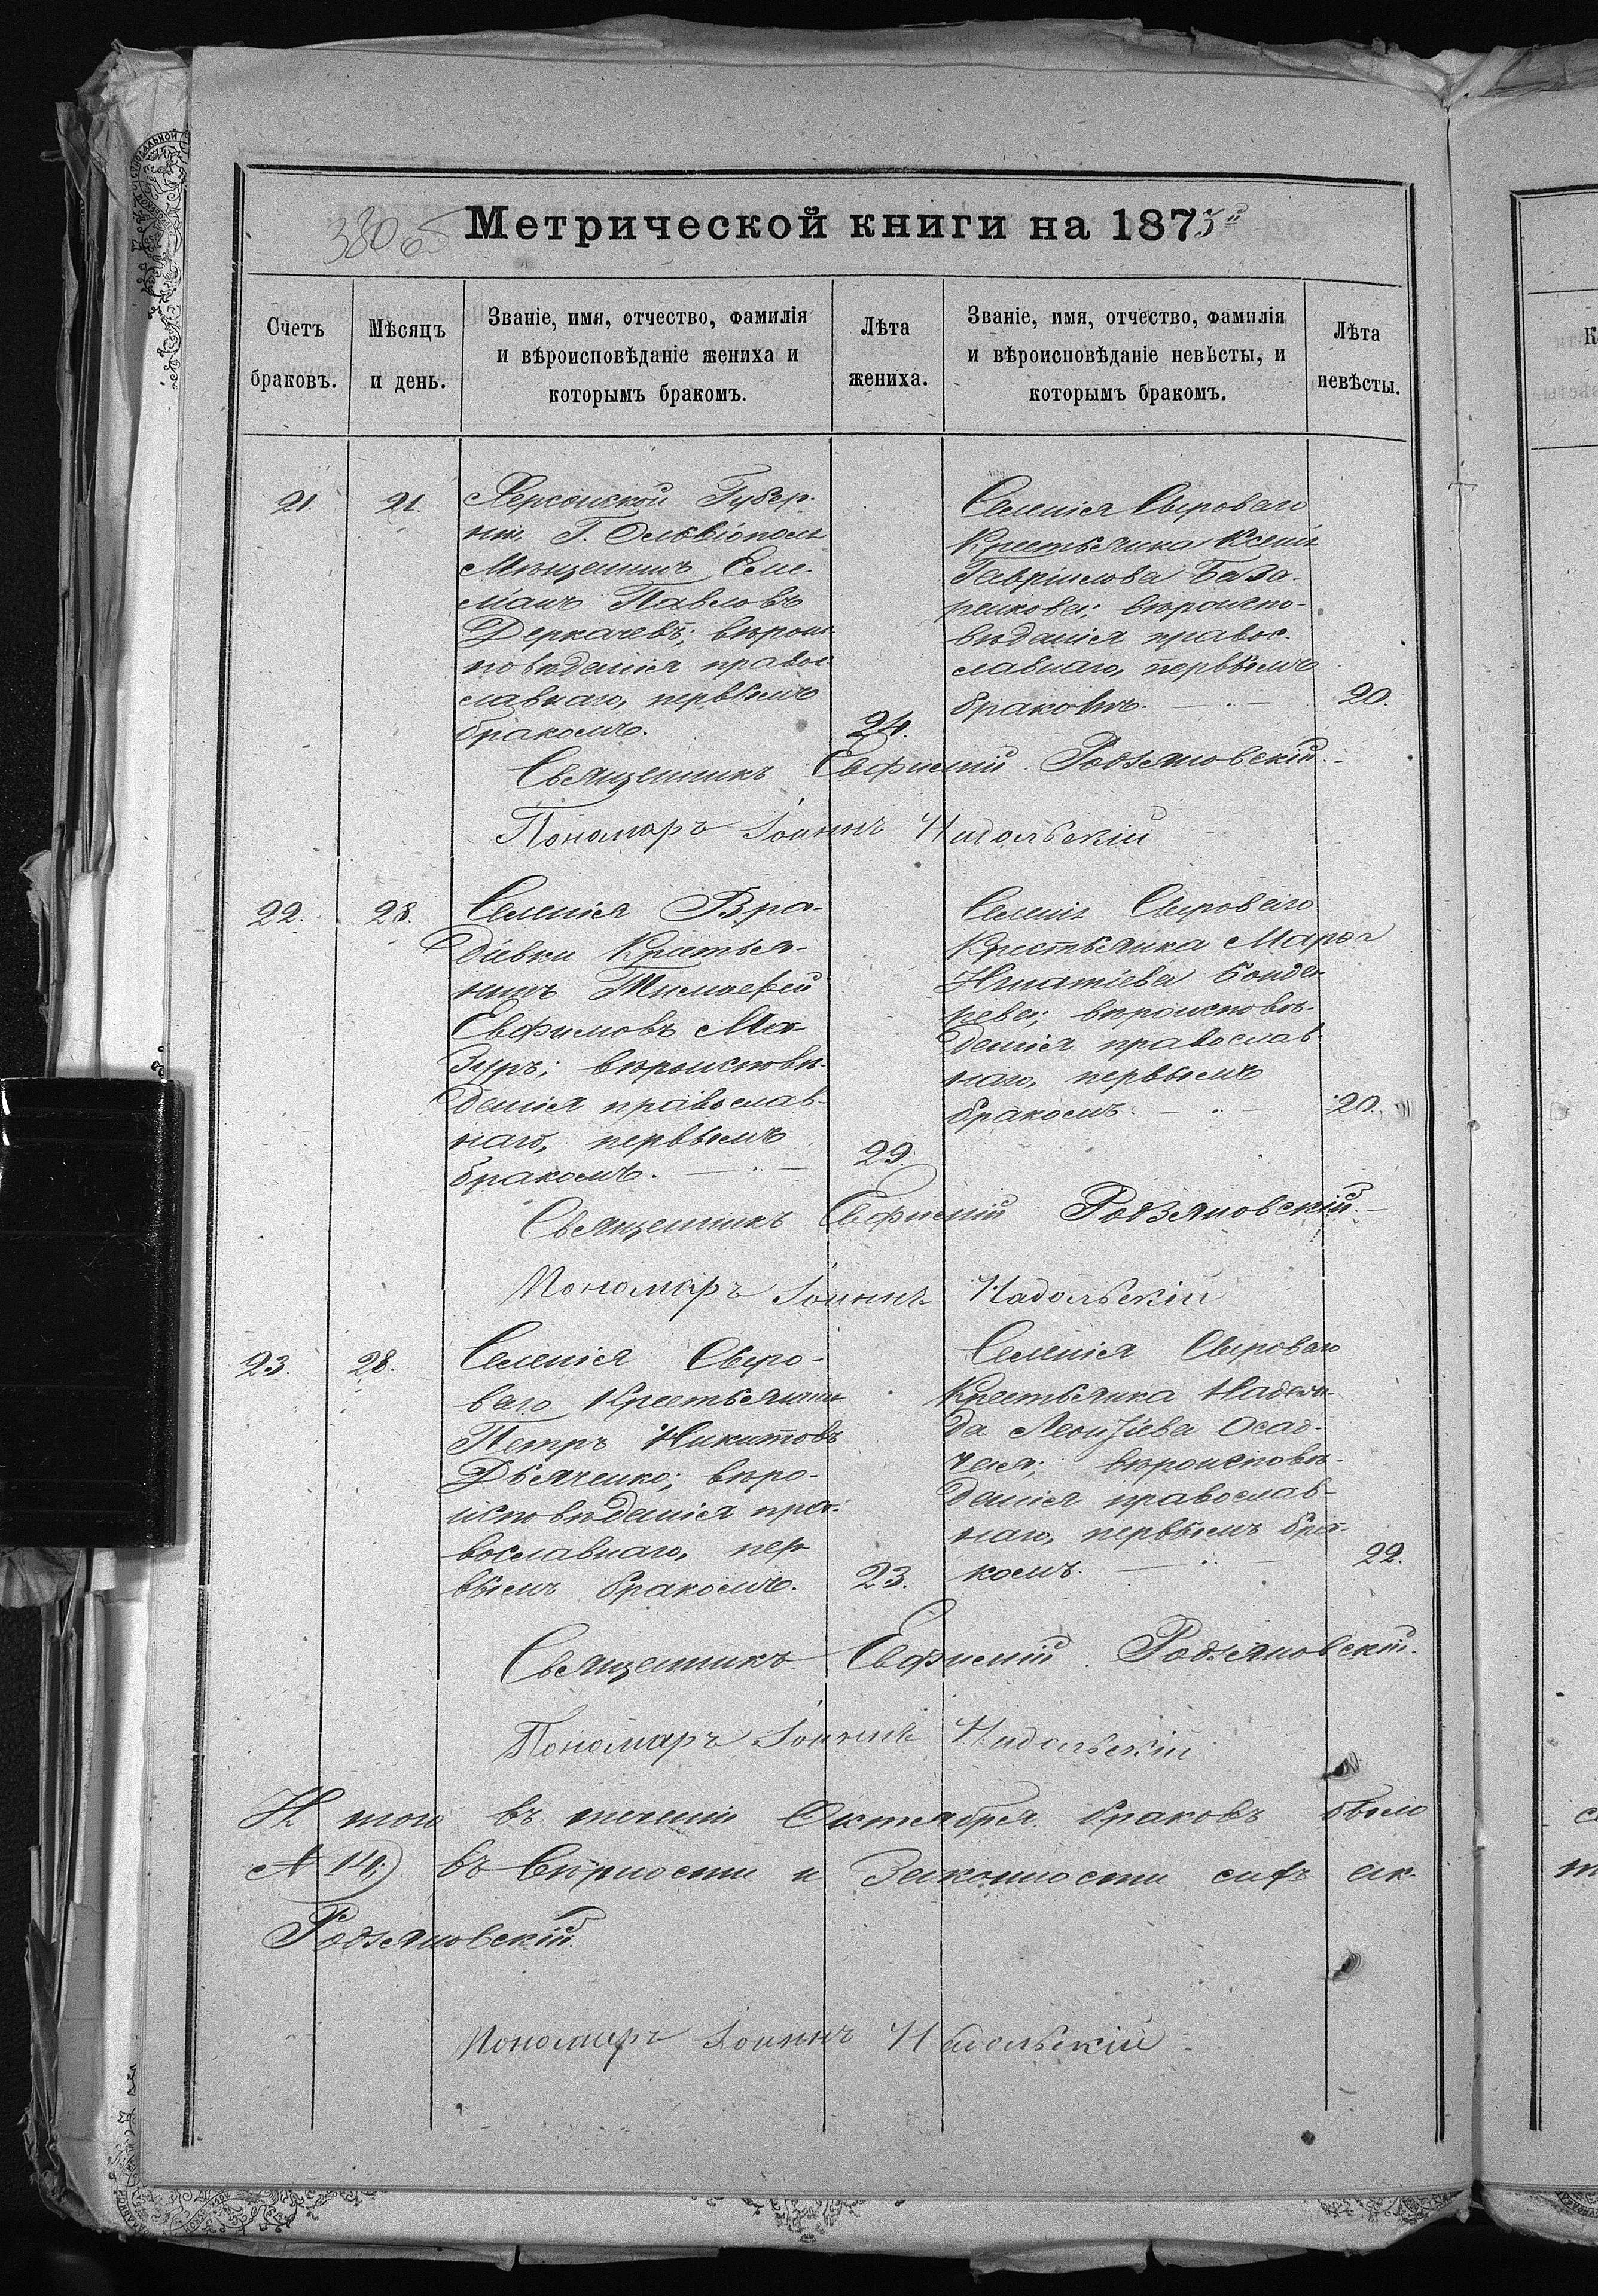 380 об
Метрической книги на 1873й
Счетъ браковъ.
Мѣсяцъ и день.
Званіе, имя, отчество, фамилія
и вѣроисповѣданіе жениха и
которымъ бракомъ.
Лѣта жениха.
Званіе, имя, отчество, фамилія
и вѣроисповѣданіе невѣсты, и
которымъ бракомъ.
Лѣта невѣсты.
21. 21.
Херсонской Губер-
ніи, Г. Ольвіополя
Мѣщанинъ Еме-
ліанъ Павловъ
Деркачевъ; вѣроис-
повѣданія правос-
лавнаго, первымъ
бракомъ.
24.
Селенія Сыроваго
Крестьянка Ксенія
Гавріилова База-
ренкова; вѣроиспо-
вѣданія правос-
лавнаго, первымъ
бракомъ.
20.
Священникъ Евфимій Родзяновскій.
Пономаръ Іоаннъ Надольскій
22. 28.
Селенія Вра-
діевки Крестья-
нинъ Тимофей
Евфимовъ Ма-
зуръ; вѣроисповѣ-
данія православ-
наго, первымъ
бракомъ.
29.
Селенія Сыроваго
Крестьянка Марѳа
Игнатіева Бонда-
рева; вѣроисповѣ-
данія православ-
наго, первымъ
бракомъ.
20.
Священникъ Евфимій Родзяновскій.
Пономаръ Іоаннъ Надольскій
23. 28.
Селенія Сыро-
ваго Крестьянинъ
Петръ Никитовъ
Дьяченко; вѣро-
исповѣданія пра-
вославнаго, пер
вымъ бракомъ.
23.
Селенія Сыроваго
Крестьянка Надеж-
да Леонтіева Осад-
чая; вѣроисповѣ-
данія православ-
наго, первымъ бра-
комъ.
22.
Священникъ Евфимій Родзяновскій.
Пономаръ Іоаннъ Надольскій
И того въ теченіи Октября браковъ было
14.) въ Вѣрности и Законности сихъ ак-
Родзяновскій.
Пономаръ Іоаннъ Надольскій